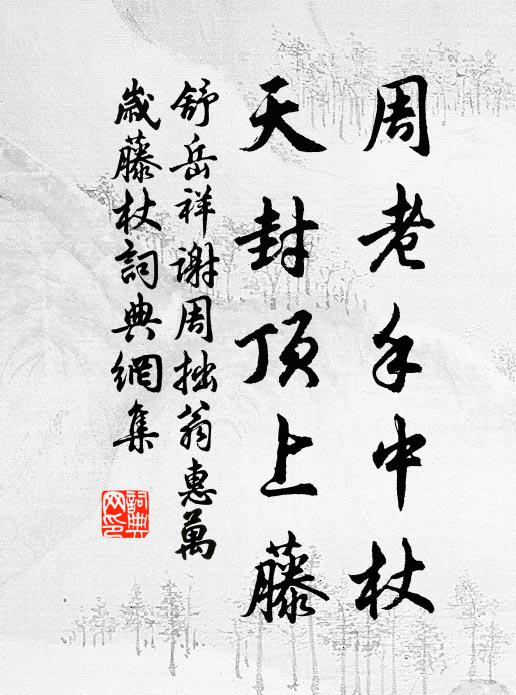 周老手中杖
天封顶上藤
舒岳祥谢周拙翁惠萬
歲藤杖詞典網集
詞典网印